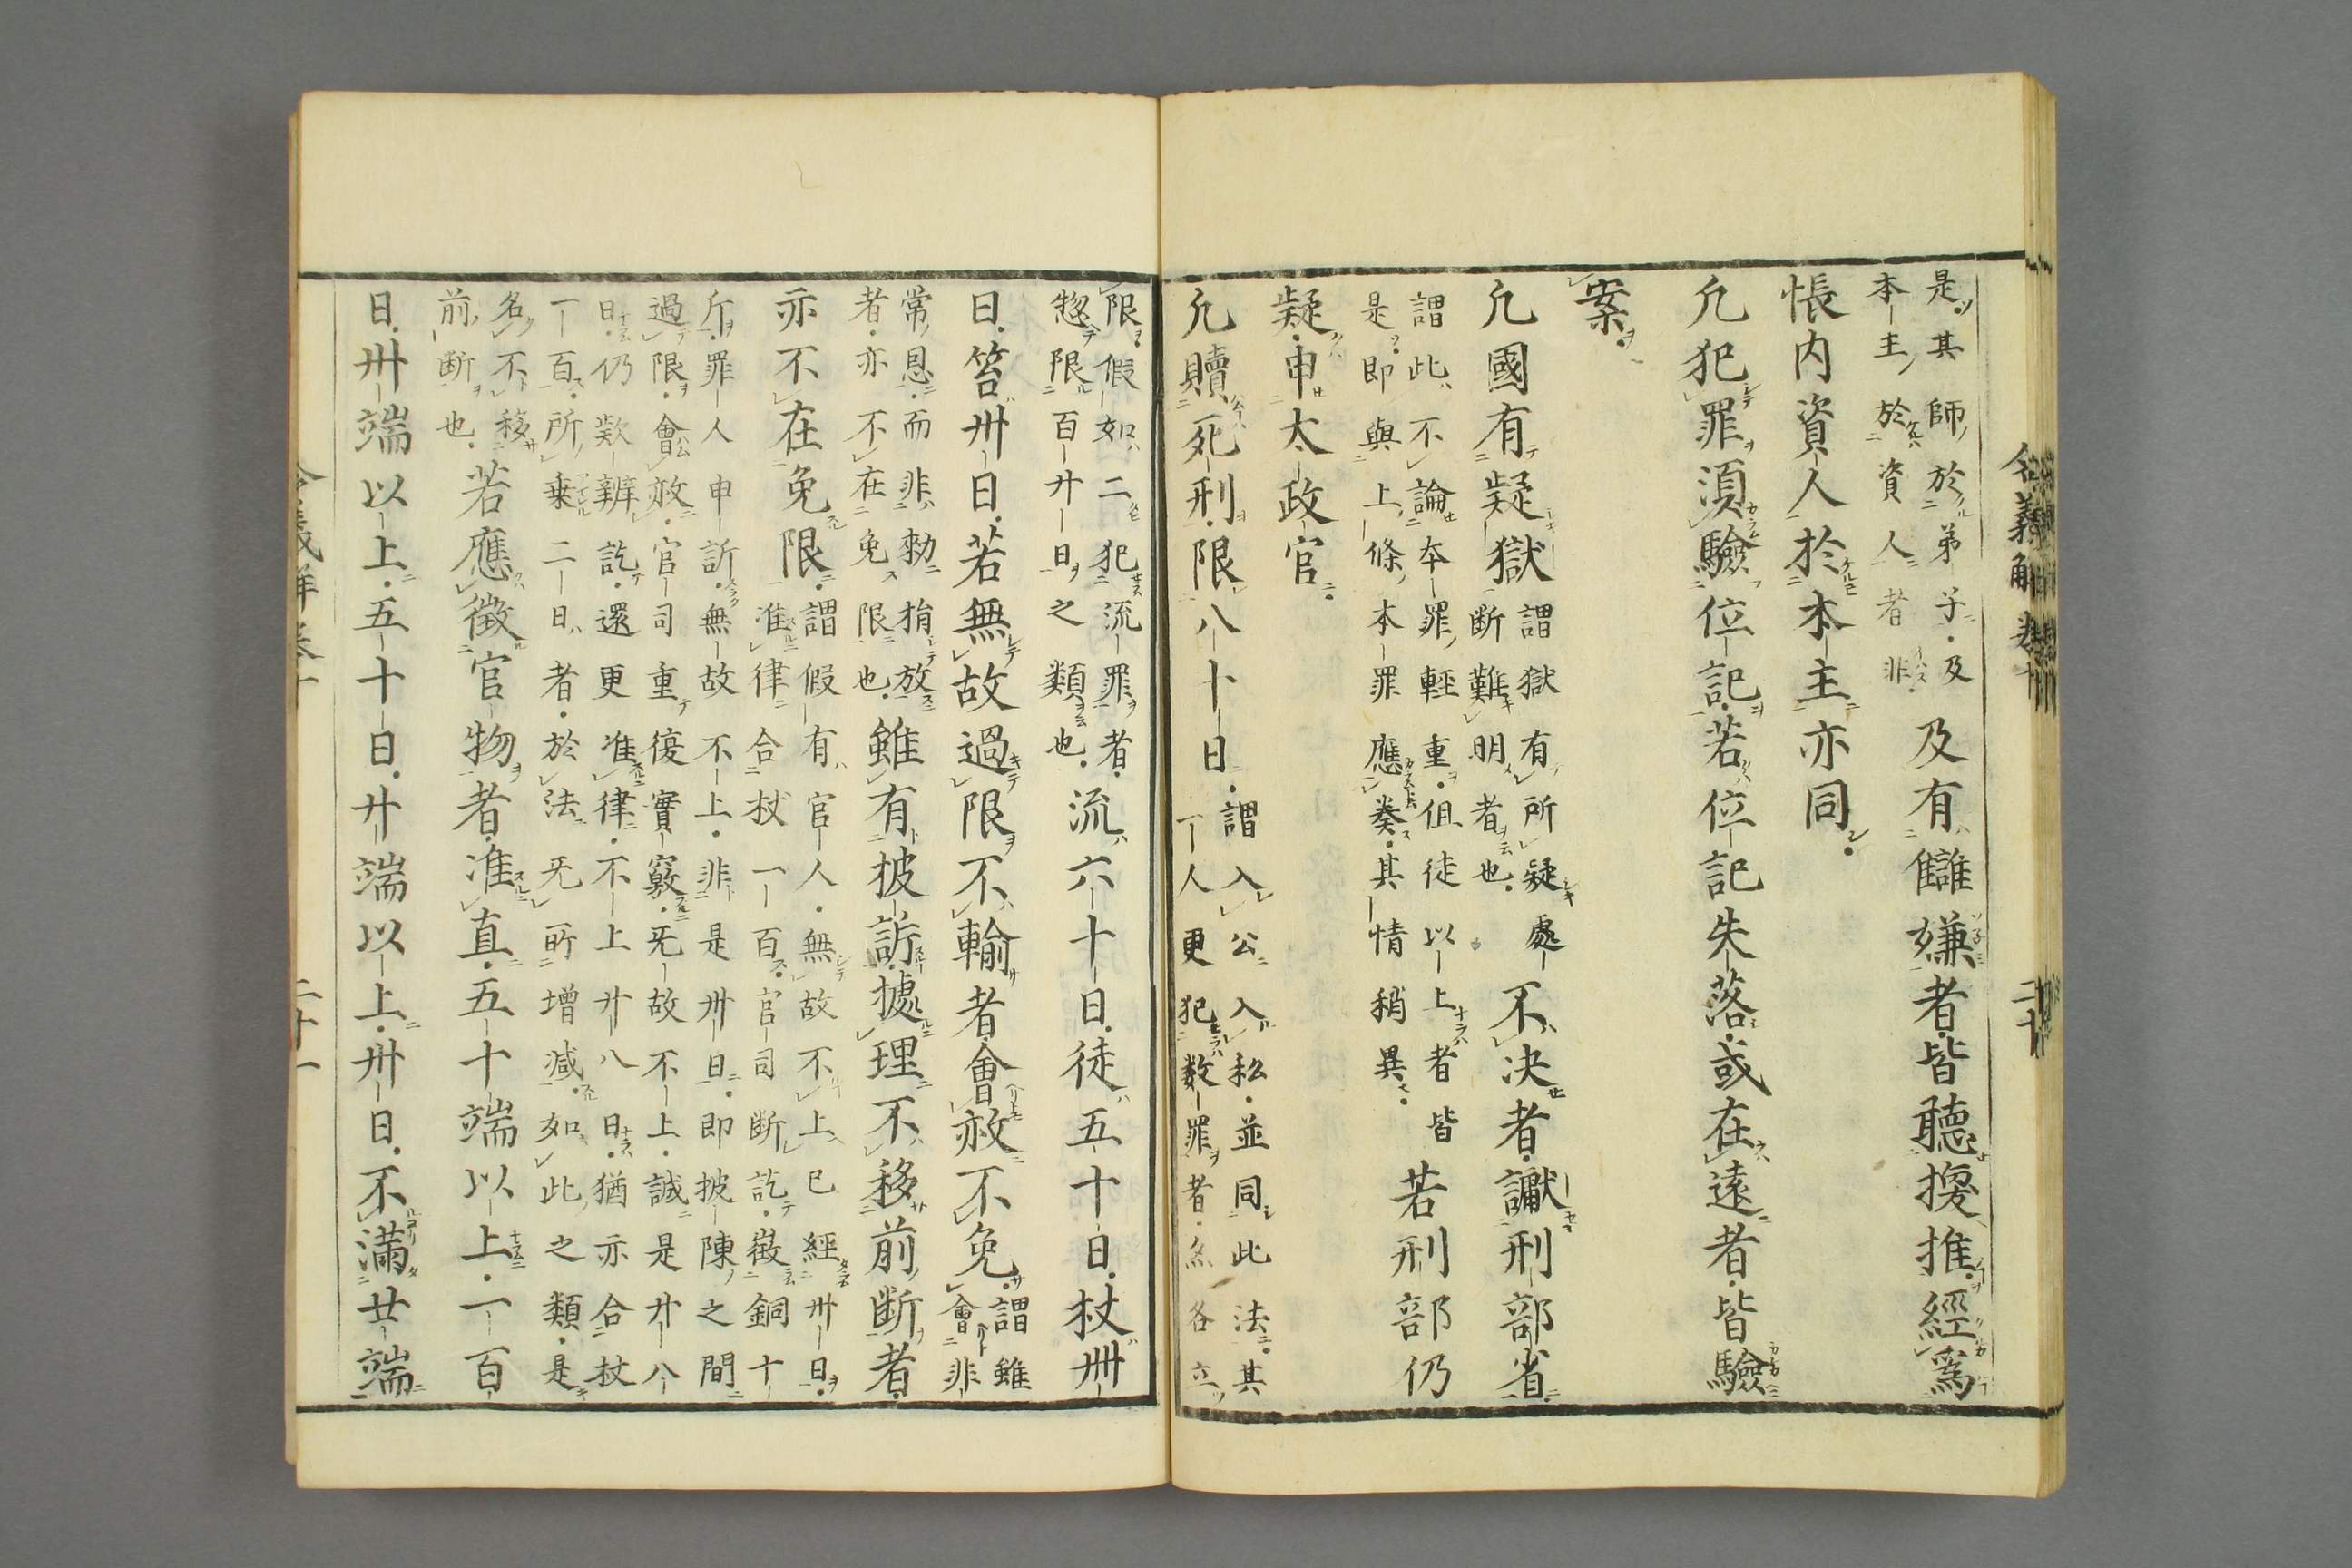 是其師於弟子及
本主於資人者非
及有讎嫌者皆聽換推經爲
帳内資人於本主亦同
凢犯罪須驗位記若位記失落或在遠者皆驗
案
凢國有疑獄
謂獄有所疑處
断難明者也
不决者讞刑部省
謂此不論本罪輕重但徒以上者皆
是即與上條本罪應奏其情稍異
若刑部仍
疑申太政官
凢贖死刑限八十日
謂入公入私並同此法其
一人更犯数罪者亦各立
令義解卷十
二十
限假如二犯流罪者
惣限百廾日之類也
流六十日徒五十日杖卌
日笞卅日若無故過限不輸者會赦不免
謂雖
會非
常恩而非勅指放
者亦不在免限也
雖有披訴據理不移前断者
亦不在免限
謂假有官人無故不上已經卅日
准律合杖一百官司断訖徴銅十
斤罪人申訴無故不上非是卅日即披陳之間
過限會赦官司重復實竅旡故不上誠是廾八
日仍欵辨訖還更准律不上廾八日猶亦合杖
一百所乗二日者於法旡所增减如此之類是
名不移
前断也
若應徴官物者准直五十端以上一百
日卅端以上五十日廾端以上卅日不滿廿端
二十一